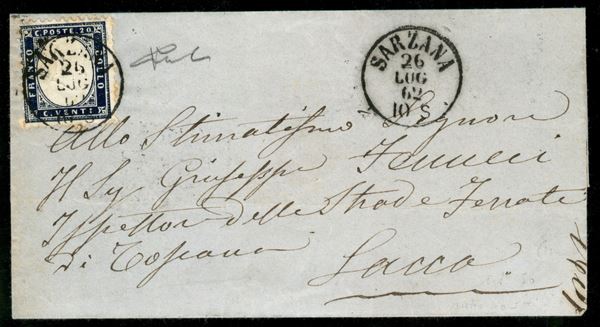 C. POSTE. 20
FRANCO
BOLLO
C. VENTI
SARZANA
26
LUG
62
SARZANA
26
LUG
62
10 S
Allo Stimatissimo Signore
Il Sig Giuseppe
Ispettor delle Strade Ferrate
di Toscana
Lucca